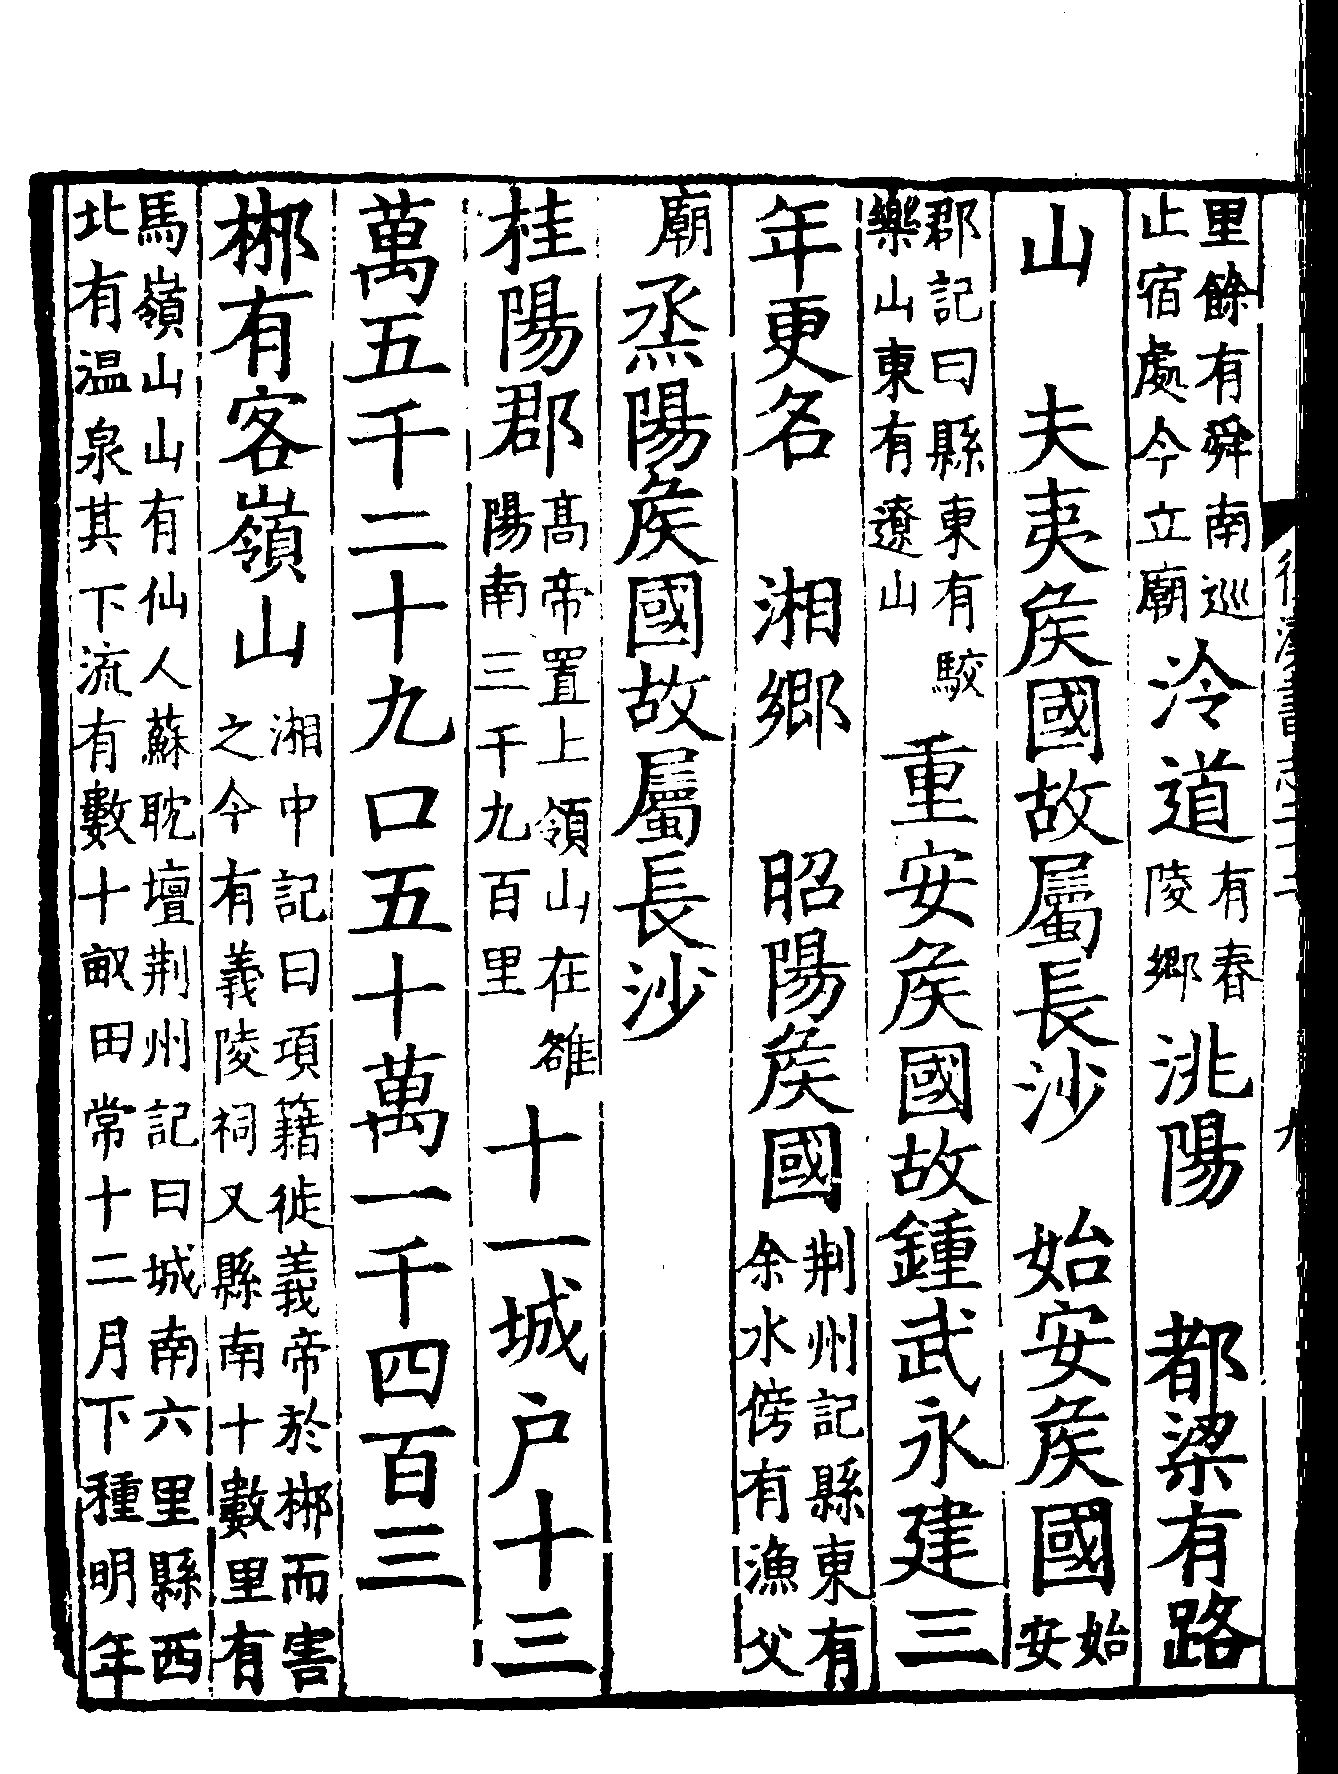 里餘有舜南巡止宿處今立廟泠道有春陵鄉洮陽　都梁有路
山　夫夷矦國故屬長沙　始安矦國始安
郡記曰縣東有駮樂山東有遼山　重安矦國故鍾武永建三
年更名　湘鄉　昭陽矦國荆州記縣東有余水傍有漁父
廟烝陽矦國故屬長沙
桂陽郡髙帝置上領山在雒陽南三千九百里十一城户十三
萬五千二十九口五十萬一千四百三
郴有客嶺山湘中記曰項籍徙義帝於郴而害之今有義陵祠又縣南十數里有
馬嶺山山有仙人蘇耽壇荆州記曰城南六里縣西北有温泉其下流有數十畝田常十二月下種明年